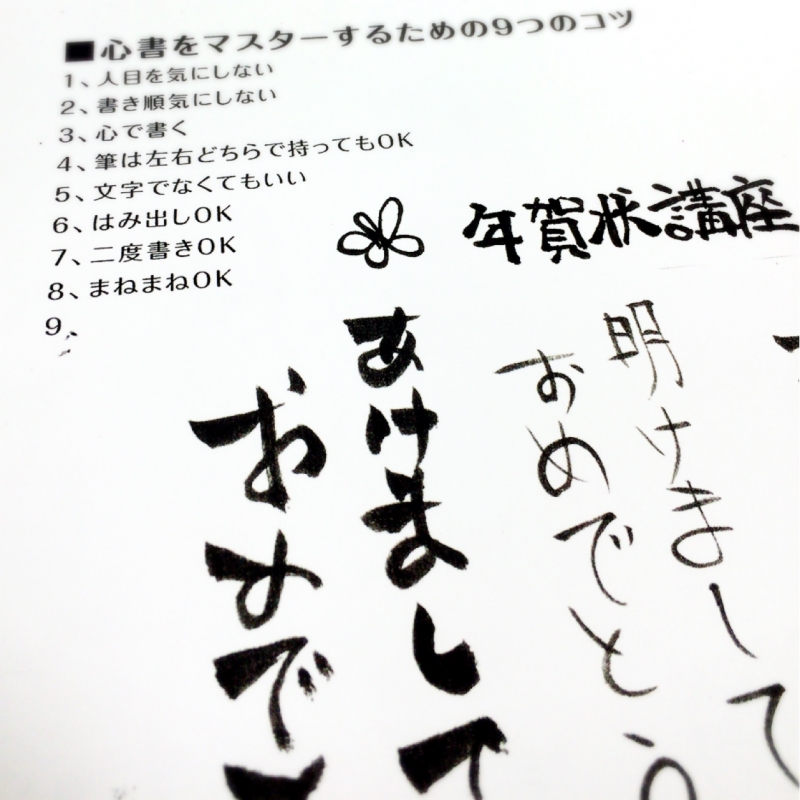 ■心書をマスターするための9つのコツ
1、人目を気にしない
2、書き順気にしない
3、心で書く
4、筆は左右どちらで持ってもOK
5、文字でなくてもいい
6、はみ出しOK
7、二度書きOK
8、まねまねOK
9、
年賀状講座
明けまして
おめでとう
あけまして
おめで